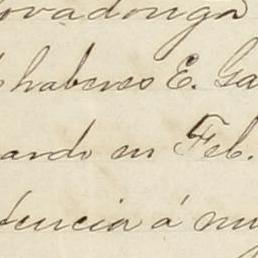 ovadonga
haberes E. Ga
ando en Feb.
tencia á mi